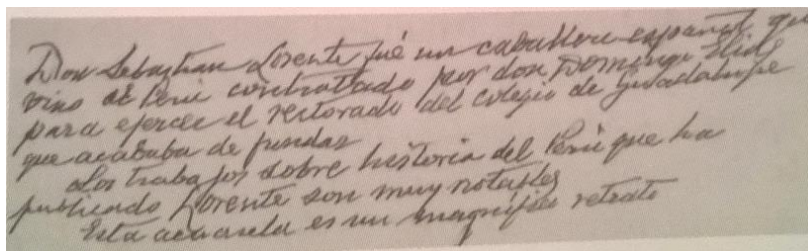 Don Sebastian Lorente fué un caballero español que
vino al Perú contratado por don Domingo Elias
para ejercer el rectorado del colegio de Guadalupe
que acababa de fundar
Los trabajos sobre historia del Perú que ha
publicado Lorente son muy notables
Esta acuarela es un magnífico retrato